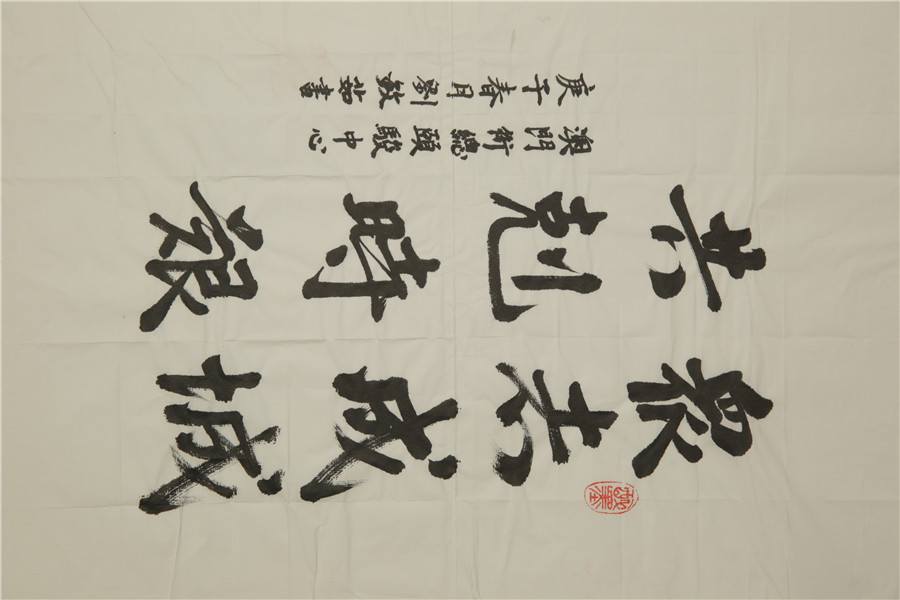 眾志成城
共剋時艱
澳門街總頤駿中心
庚子春月劉敏茹書